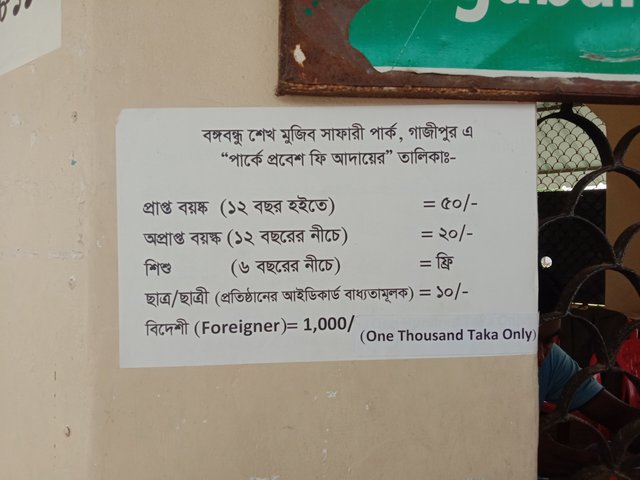 বঙ্গবন্ধু শেখ মুজিব সাফারী পার্ক, গাজীপুর এ
“পার্কে প্রবেশ ফি আদায়ের” তালিকাঃ-
প্রাপ্ত বয়স্ক (১২ বছর হইতে) = ৫০/-
অপ্রাপ্ত বয়স্ক (১২ বছরের নীচে) = ২০/-
শিশু (৬ বছরের নীচে) = ফ্রি
ছাত্র/ছাত্রী (প্রতিষ্ঠানের আইডিকার্ড বাধ্যতামূলক) = ১০/-
বিদেশী (Foreigner)= 1,000/ (One Thousand Taka Only)